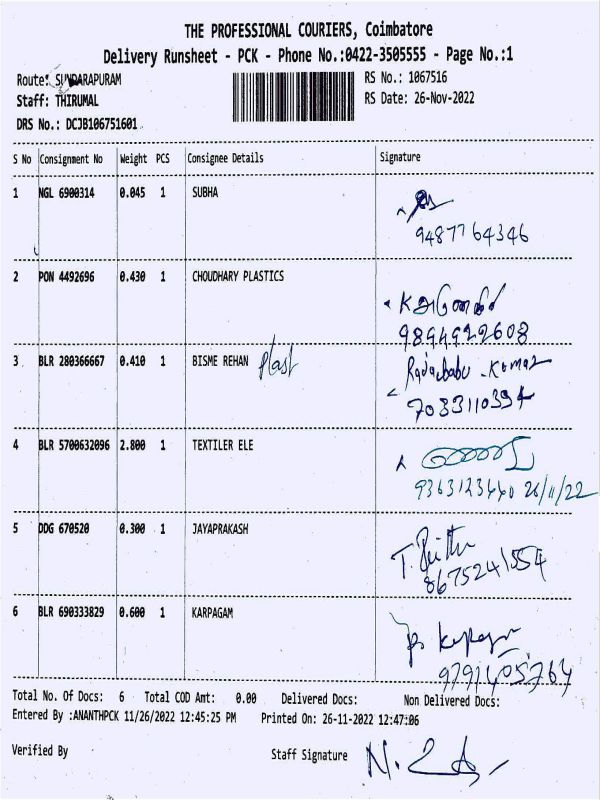 THE PROFESSIONAL COURIERS, Coimbatore
Delivery Runsheet - PCK - Phone No.:0422-3505555 - Page No.:1
Route: SUNDARAPURAM RS No.: 1067516
Staff: THIRUMAL RS Date: 26-Nov-2022
DRS No.: DCJB106751601
S No Consignment No Weight PCS Consignee Details Signature
1 NGL 6900314 0.045 1 SUBHA
9487764346
2 PON 4492696 0.430 1 CHOUDHARY PLASTICS
9894922608
3 BLR 280366667 0.410 1 BISME REHAN Plast Radababu . Kumar
7083110394
4 BLR 5700632096 2.800 1 TEXTILER ELE
26/11/22
5 DDG 670520 0.300 1 JAYAPRAKASH
8675241554
6 BLR 690333829 0.600 1 KARPAGAM
9791405764
Total No. Of Docs: 6 Total COD Amt: 0.00 Delivered Docs: Non Delivered Docs:
Entered By :ANANTHPCK 11/26/2022 12:45:25 PM Printed On: 26-11-2022 12:47:06
Verified By Staff Signature